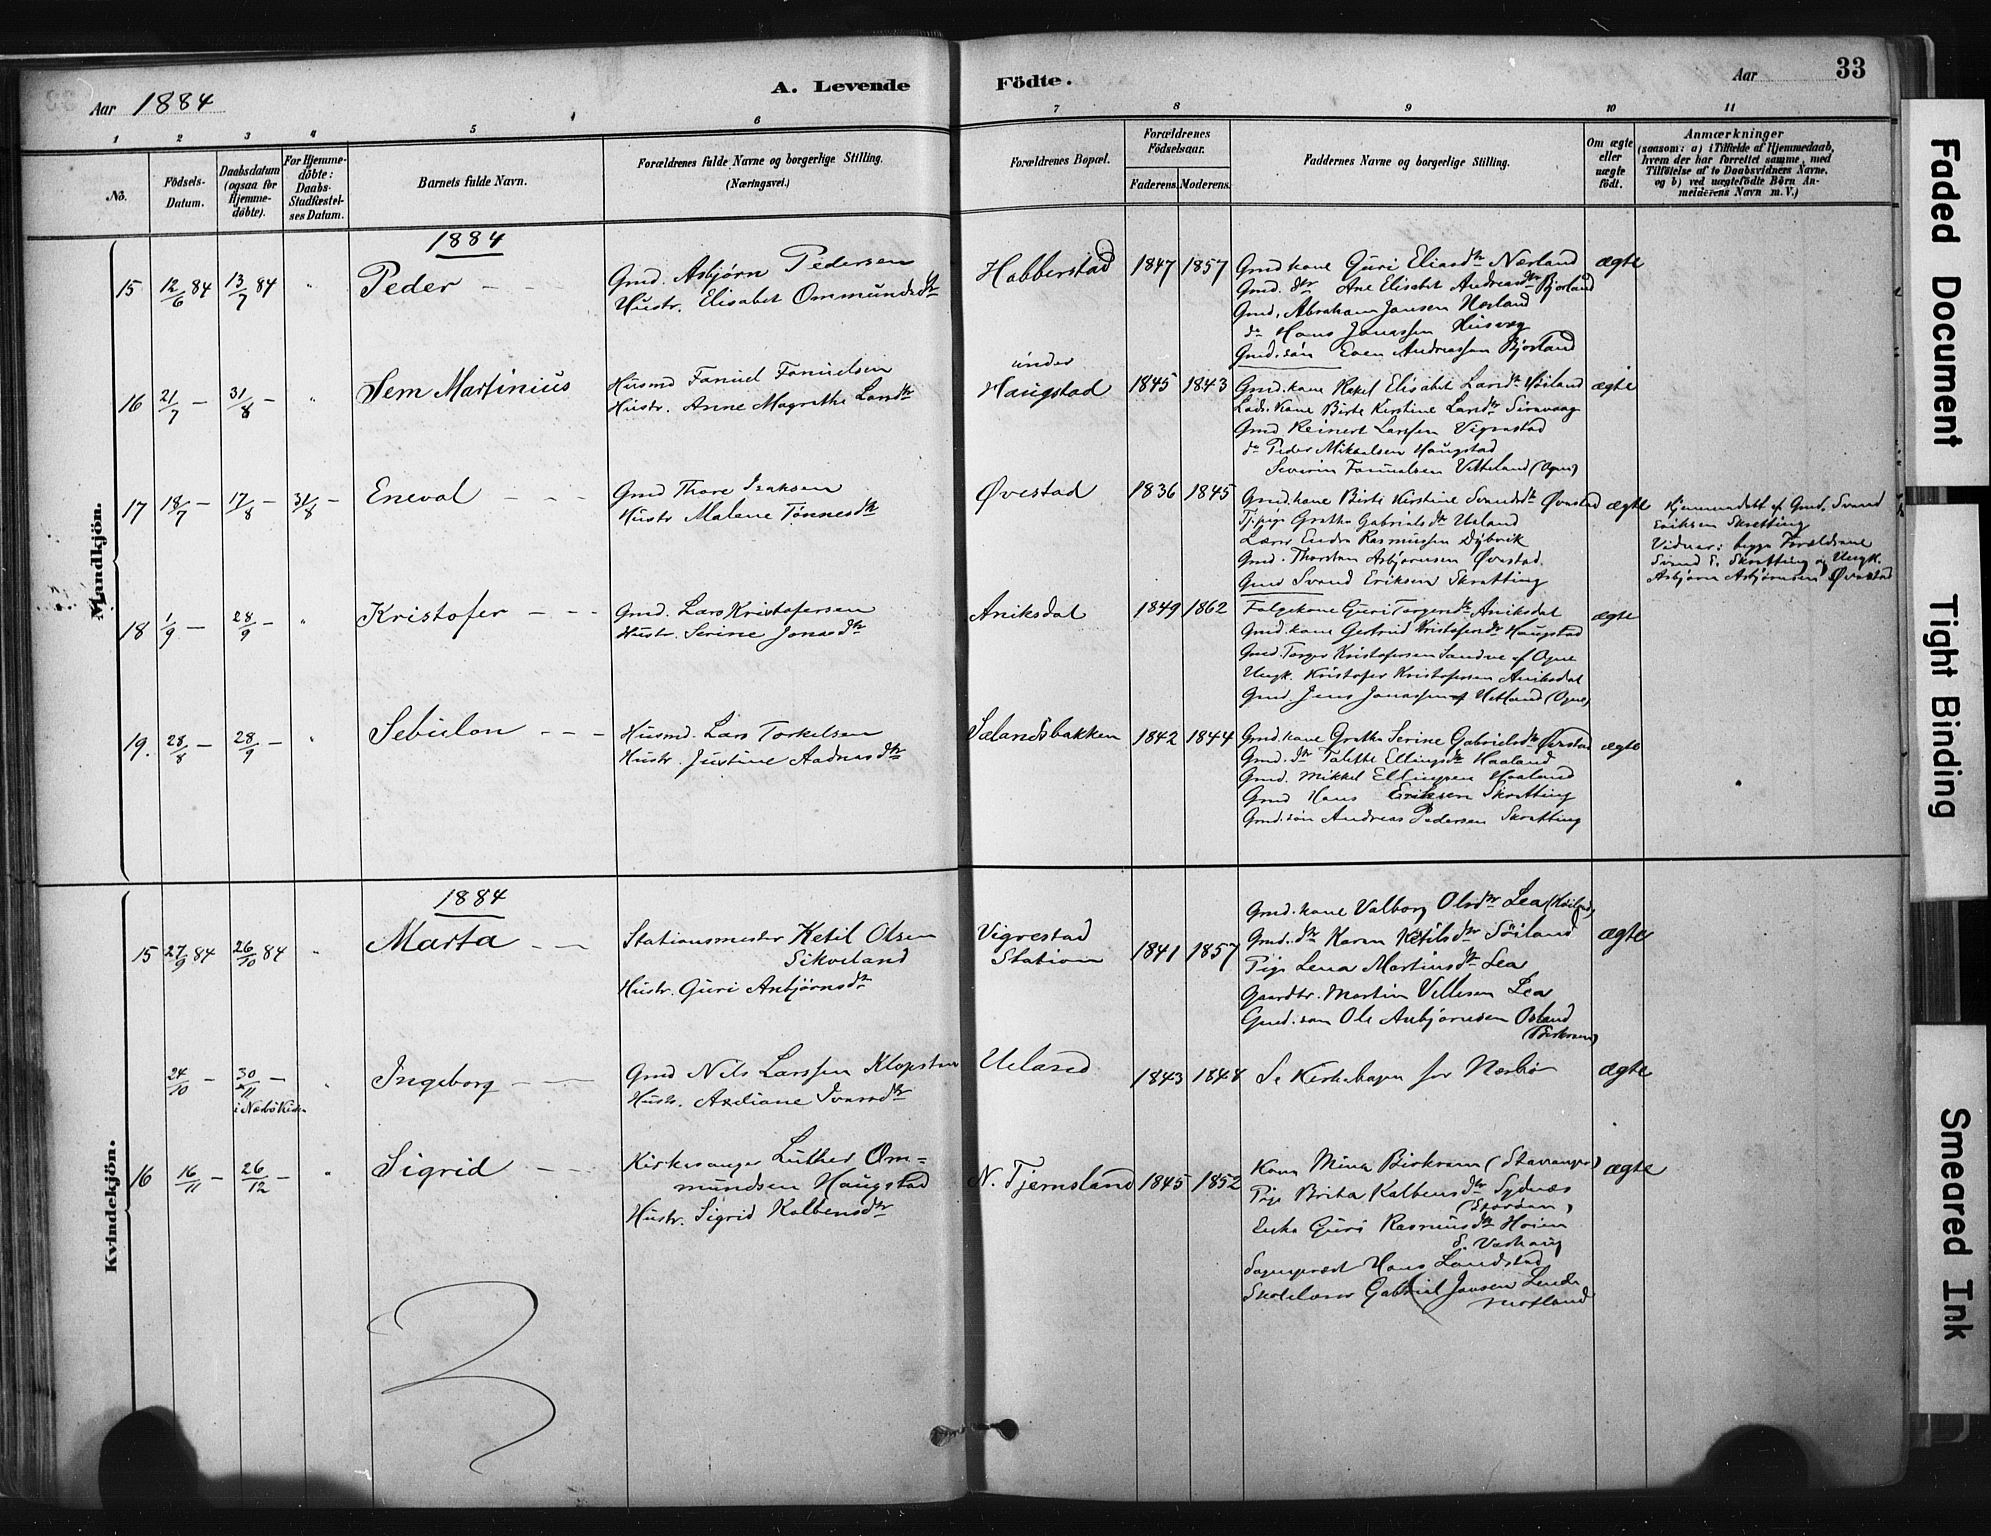 A. Levende Fødte.
Aar 1884
Aar 33
1 2 3 4 5 6 7 8 9 10 11
No.
Fødsels-Datum.
Daabsdatum (ogsaa for Hjemme-døbte).
For Hjemme-døbte: Daabs-Stadfæstel-ses Datum.
Barnets fulde Navn.
Forældrenes fulde Navne og borgerlige Stilling. (Næringsvei.)
Forældrenes Bopæl.
Forældrenes Fødselsaar.
Faderens. Moderens.
Faddernes Navne og borgerlige Stilling.
Om ægte eller uægte født.
Anmærkninger
(saasom: a) i Tilfælde af Hjemmedaab,
hvem der har forrettet samme, med
Tilføielse af to Daabsvidners Navne,
og b) ved uægtefødte Børn An-
melderens Navn m. V.)
Mandkjøn.
1884
15 12/6 84 13/7 84 " Peder
Gmd. Asbjørn Pedersen
Hustr. Elisabet Ommundsdtr
Habberstad 1847 1857
Gmd.kone Guri Eliasdtr Nærland ægte
Gmd. dtr Ane Elisabet Andreasdtr Bjorland
Gmd. Abraham Jansen Nærland
do Hans Jonassen Husvæg
Gmd.søn Even Andreassen Bjorland
16 21/7 – 31/8 – " Sem Martinius
Husmd Fanuel Fanuelsen
Hustr. Anne Magrethe Larsdtr
under
Haugstad 1845 1843
Gmd.kone Rakel Elisabet Larsdtr Høiland ægte
Lods.kone Birte Kirstine Larsdtr Sirevaag
Gmd Reinert Larssen Vigrestad
do Peder Mikkelsen Haugstad
Severin Fanuelsen Vetteland (Ogne)
17 18/7 – 17/8 – 31/8 – Eneval
Gmd Thore Isaksen
Hustr Malene Tønnesdtr
Øvestad 1836 1845
Gmd.kone Birte Kirstine Svendsdtr Øvestad ægte
Tj.pige Grethe Gabrielsdtr Ueland
Lærer Endre Rasmussen Dybvik
Gmd. Thorsten Asbjørnsen Øvestad.
Gmd Svend Eriksen Skretting
Hjemmedøbt af Gmd. Svend
Eriksen Skretting
Vidner: begge Forældrene
Svend E. Skretting og Ungk.
Asbjørn Asbjørnsen Øvestad
18 1/9 – 28/9 – " Kristofer
Gmd. Lars Kristofersen
Hustr. Serine Jonasdtr
Aniksdal 1849 1862
Følgekone Guri Torgersdtr Aniksdal ægte
Gmd.kone Gertrud Kristofersdtr Haugstad
Gmd. Torger Kristofersen Sandve af Ogne
Ungk. Kristofer Kristofersen Aniksdal
Gmd Jens Jonassen af Hetland (Ogne)
19. 28/8 – 28/9 – " Sebulon
Husmd. Lars Torkelsen
Hustr. Justine Aadnesdtr
Sælandsbakken 1842 1844
Gmd.kone Grethe Serine Gabrielsdtr Øvestad ægte
Gmd. dtr Talette Ellingsdtr Haaland
Gmd. Mikkel Ellingsen Haaland
Gmd Hans Eriksen Skretting
Gmd.søn Andreas Pedersen Skretting
Kvindekjøn.
1884
15 27/9 84 26/10 84 " Marta
Stationsmester Ketil Olsen
Sikveland
Hustr. Guri Anbjørnsdtr
Vigrestad
Station 1841 1857
Gmd.kone Valborg Olsdtr Lea
Gmd.dtr Karen Ketilsdtr Søiland ægte
Pige Lena Martinsdtr Lea
Gaardbr. Martin Villesen Lea
Gmd.søn Ole Anbjørnsen Osland
(Birkrem)
24/10 – 30/11 – " Ingeborg
i Nærbø Kirke
Gmd Nils Larssen
Hustr. Axeliane Ivarsdtr
Ueland 1843 1848
Se Kirkebogen for Nærbø ægte
16 16/11 – 26/12 – " Sigrid
Kirkesanger Luther Om-
mundsen Haugstad
Hustr. Sigrid Kolbensdtr
N. Tjemsland 1845 1852
Kone Mina Birkrem (Stavanger) ægte
Pige Brita Kolbensdtr Sydnæs
Enke Guri Rasmusdtr
Sogneprest Hans Landstad
Skolelærer Gabriel Jansen Lende
Motland
Faded Document
Tight Binding
Smeared Ink